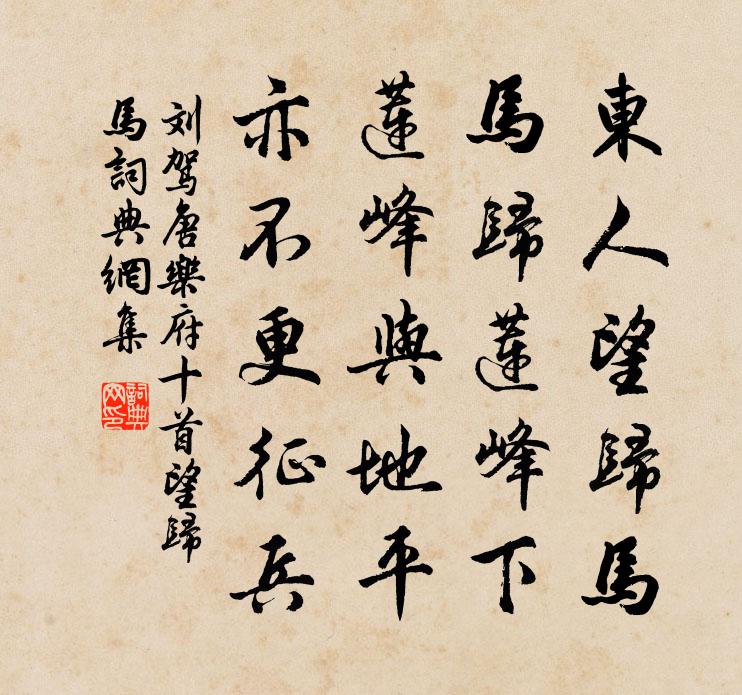 東人望歸馬
馬歸蓮峰下
蓮峰與地平
亦不更征兵
刘駕唐樂府十首望歸
馬詞典網集
詞典網印